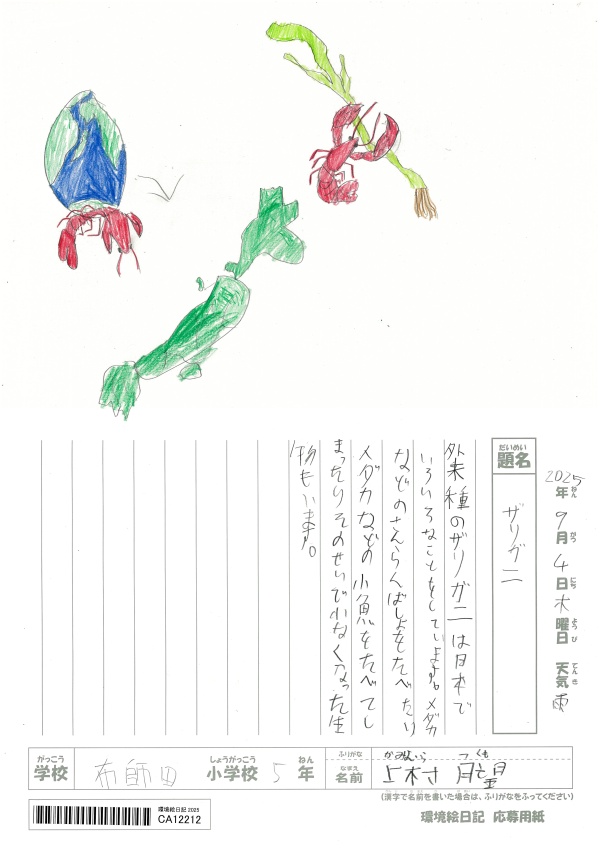 2025年ねん 9月がつ 4日にち 木曜日ようび 天気てんき 雨
題名だいめい
ザリガニ
外来種のザリガニは日本で
いろいろなことをしています。メダカ
などのさんらんばしょをたべたり
メダカなどの小魚をたべてし
まったりそのせいで少なくなった生
物もいます。
学校がっこう 布師田 小学校しょうがっこう 5年ねん
ふりがな
名前なまえ 上村
(漢字で名前を書いた場合は、ふりがなをふってください)
環境絵日記 2025
CA12212
環境絵日記 応募用紙